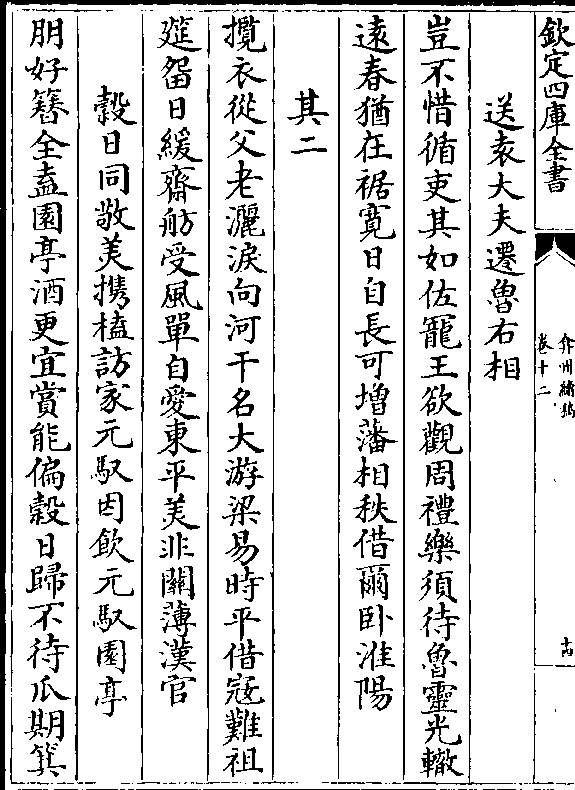 欽定四庫全書
弇州續稿
卷十二
十四
送袁大夫遷魯右相
豈不惜循吏其如佐寵王欲觀周禮樂須待魯靈光轍
遠春猶在裾寛日自長可増藩相秩借爾卧淮陽
其二
攬衣從父老灑淚向河干名大游梁易時平借冦難祖
筵留日緩齋舫受風單自愛東平美非關薄漢官
榖日同敬美携榼訪家元馭因飲元馭園亭
朋好簪全盍園亭酒更宜賞能偏榖日歸不待瓜期箕